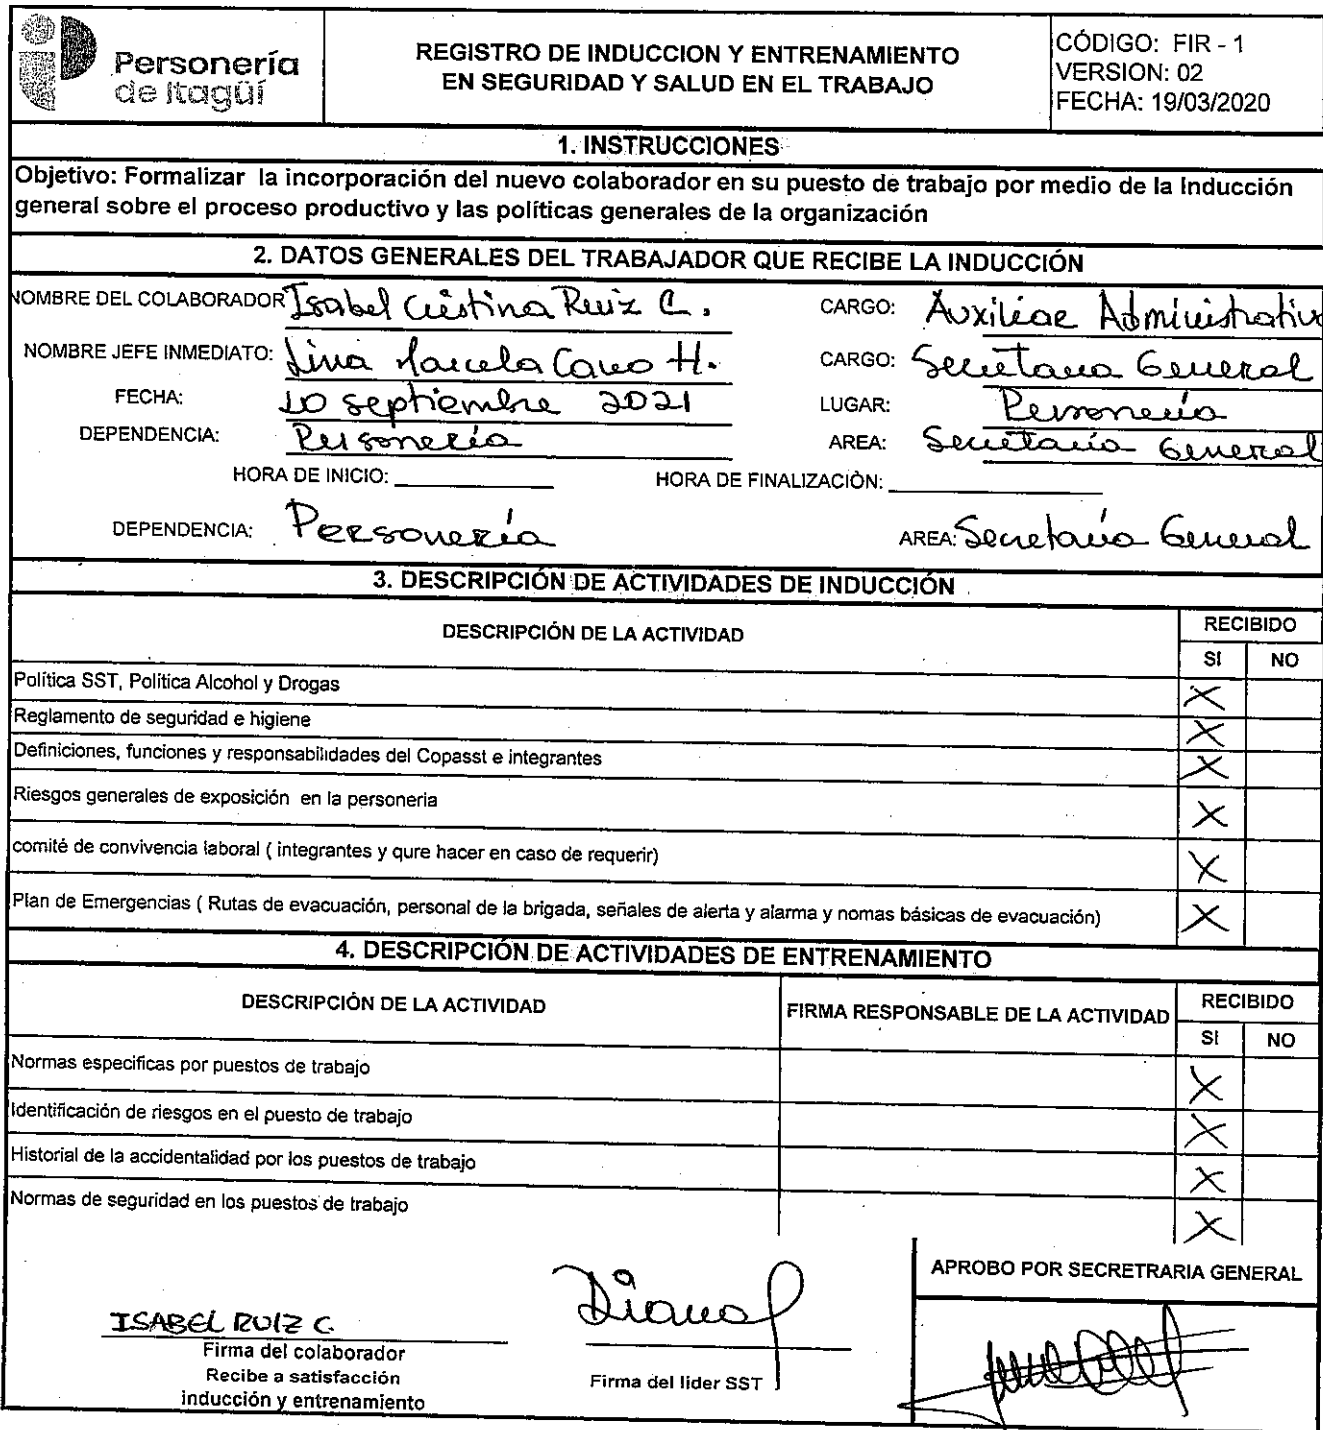 Personería
de Itagüí
REGISTRO DE INDUCCION Y ENTRENAMIENTO
EN SEGURIDAD Y SALUD EN EL TRABAJO
CÓDIGO: FIR - 1
VERSION: 02
FECHA: 19/03/2020
1. INSTRUCCIONES
Objetivo: Formalizar la incorporación del nuevo colaborador en su puesto de trabajo por medio de la Inducción
general sobre el proceso productivo y las políticas generales de la organización
2. DATOS GENERALES DEL TRABAJADOR QUE RECIBE LA INDUCCIÓN
NOMBRE DEL COLABORADOR Isabel Cristina Ruiz C. CARGO: Auxiliar Administrativo
NOMBRE JEFE INMEDIATO: Lina Marcela Cano H. CARGO: Secretaria General
FECHA: 10 septiembre 2021 LUGAR: Personería
DEPENDENCIA: Personería AREA: Secretaría General
HORA DE INICIO: HORA DE FINALIZACIÒN:
DEPENDENCIA: Personería AREA: Secretaría General
3. DESCRIPCIÓN DE ACTIVIDADES DE INDUCCIÓN
DESCRIPCIÓN DE LA ACTIVIDAD RECIBIDO
SI NO
Política SST, Politica Alcohol y Drogas X
Reglamento de seguridad e higiene X
Definiciones, funciones y responsabilidades del Copasst e integrantes X
Riesgos generales de exposición en la personeria X
comité de convivencia laboral ( integrantes y qure hacer en caso de requerir) X
Plan de Emergencias ( Rutas de evacuación, personal de la brigada, señales de alerta y alarma y nomas básicas de evacuación) X
4. DESCRIPCIÓN DE ACTIVIDADES DE ENTRENAMIENTO
DESCRIPCIÓN DE LA ACTIVIDAD FIRMA RESPONSABLE DE LA ACTIVIDAD RECIBIDO
SI NO
Normas especificas por puestos de trabajo X
Identificación de riesgos en el puesto de trabajo X
Historial de la accidentalidad por los puestos de trabajo X
Normas de seguridad en los puestos de trabajo X
APROBO POR SECRETRARIA GENERAL
ISABEL RUIZ C.
Diana
Firma del colaborador
Recibe a satisfacción
inducción y entrenamiento
Firma del lider SST